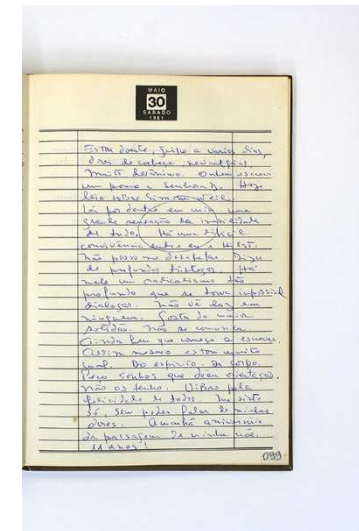 MAIO
30
SABADO
1981
Estou doente, gripe a varios dias,
dores de cabeça, nevralgias,
Muito desânimo. Ontem escrevi
um pouco a senhora D. Hoje
leio sobre Simone Weil.
Lá por dentro em mim uma
grande sensação da
de tudo. Há uma difícil
convivência entre eu e
Não posso me desabafar. Dize
de profundos diálogos. Há
nele um radicalismo tão
profundo que se torna impossível
dialogar. Não vê luz em
ninguem. Gosta da maior
solidão. Não se comunica.
Ainda bem que começo a
Assim mesmo estou muito
mal. Do espírito. Do corpo.
Peço sonhos que dêem orientação.
Não os tenho. Vibro pela
felicidade de todos. Me sinto
só, sem poder falar de minhas
dores. Amanhã aniversario
da passagem de minha mãe.
11 anos!
099